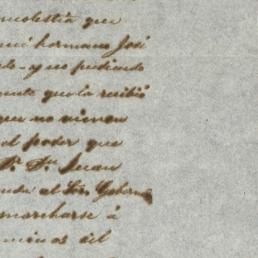 molestia que
mi hermano José
do y no pudiendo
que la recibió
que no vienen
el poder que
Dn. Juan
al Sor. Gobern
marcharse á
minas del